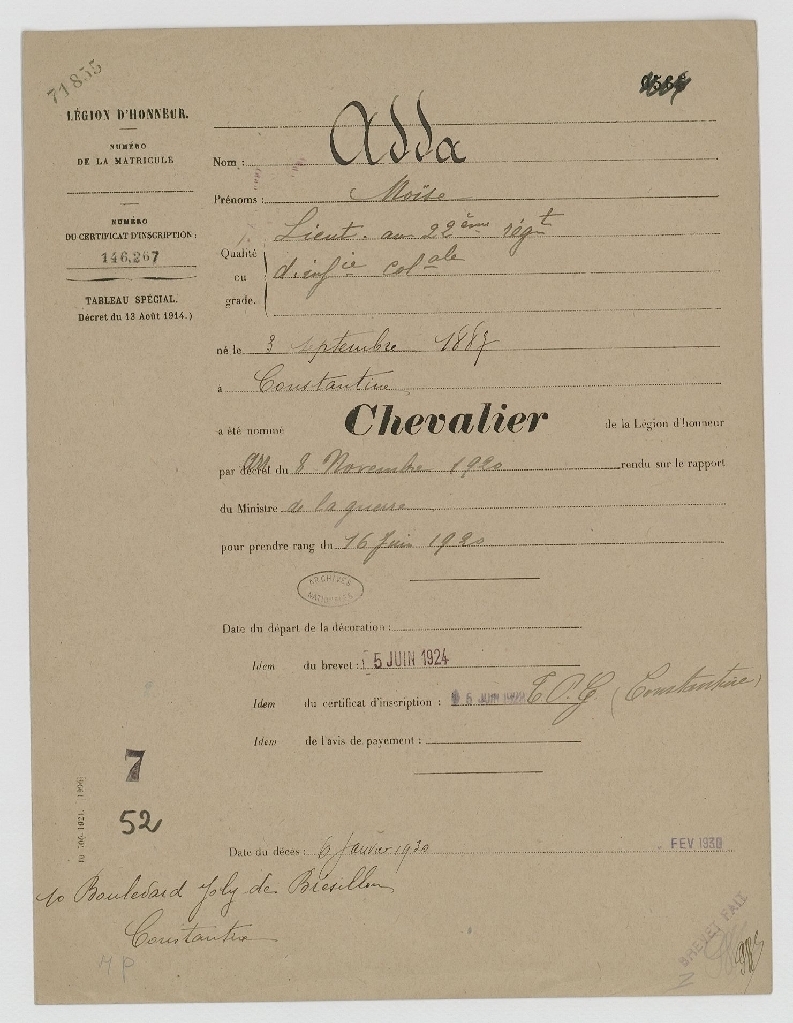 71855
LÉGION D'HONNEUR.
NUMÉRO
DE LA MATRICULE
NUMÉRO
DU CERTIFICAT D'INSCRIPTION :
146,267
TABLEAU SPÉCIAL.
Décret du 13 Août 1914.)
Nom : Adda
Prénoms : Moïse
Qualité
ou
grade.
Lieut. au 22ème régt
d'infie colale
né le 3 septembre 1887
à Constantine
a été nommé Chevalier de la Légion d'honneur
par décret du 8 Novembre 1920 rendu sur le rapport
du Ministre de la guerre
pour prendre rang du 16 Juin 1920
ARCHIVES
NATIONALES
Date du départ de la décoration :
Idem du brevet : 5 JUIN 1924
Idem du certificat d'inscription : 5 JUIN T.P.G. (Constantine)
Idem de l'avis de payement :
7
52
Date du décès : 6 Janvier 1930 FEV 1930
10 Boulevard Joly de Brésillon
Constantine
HP
BREVET